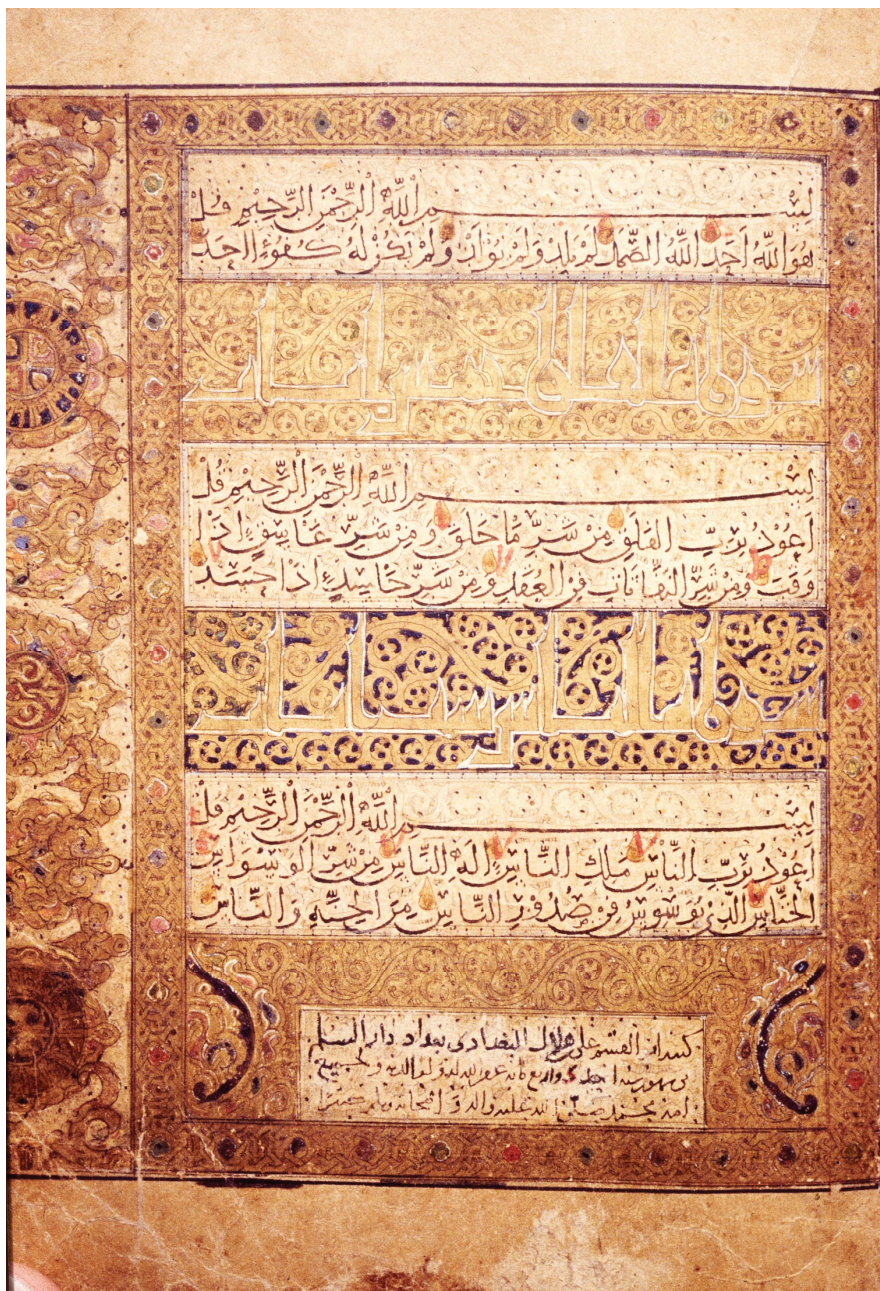 بِسْمِ اللَّهِ الرَّحْمَنِ الرَّحِيمِ قُلْ
هُوَ اللَّهُ أَحَدٌ اللَّهُ الصَّمَدُ لَمْ يَلِدْ وَلَمْ يُولَدْ وَلَمْ يَكُنْ لَهُ كُفُوًا أَحَدٌ
سورة الفلق خمس آيات
بِسْمِ اللَّهِ الرَّحْمَنِ الرَّحِيمِ قُلْ
أَعُوذُ بِرَبِّ الْفَلَقِ مِنْ شَرِّ مَا خَلَقَ وَمِنْ شَرِّ غَاسِقٍ إِذَا
وَقَبَ وَمِنْ شَرِّ النَّفَّاثَاتِ فِي الْعُقَدِ وَمِنْ شَرِّ حَاسِدٍ إِذَا حَسَدَ
سورة الناس ست آيات
بِسْمِ اللَّهِ الرَّحْمَنِ الرَّحِيمِ قُلْ
أَعُوذُ بِرَبِّ النَّاسِ مَلِكِ النَّاسِ إِلَهِ النَّاسِ مِنْ شَرِّ الْوَسْوَاسِ
الْخَنَّاسِ الَّذِي يُوَسْوِسُ فِي صُدُورِ النَّاسِ مِنَ الْجِنَّةِ وَالنَّاسِ
علي هلال البغدادي ببغداد دار السلم
سنة احدى
بمحمد صلى الله عليه واله